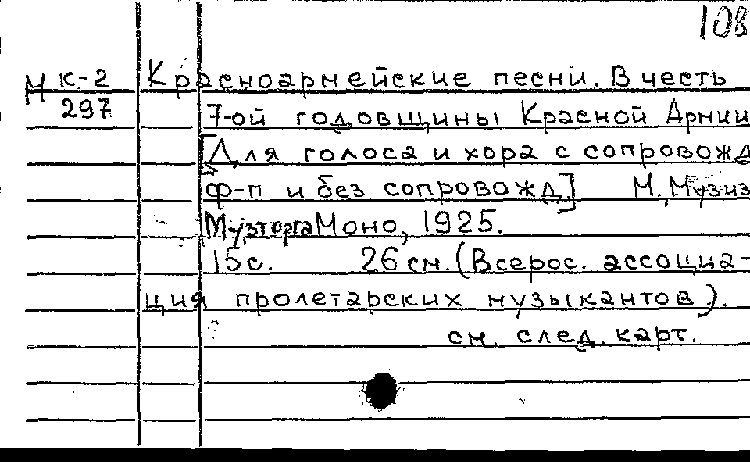 108
М К-2 Красноармейские песни. В честь
297 7-ой годовщины Красной Армии
[Для голоса и хора с сопровожд
ф-п и без сопровожд.] М. Музиз
Музторга Моно, 1925.
15с. 26 см. (Всерос. ассоциа-
ция пролетарских музыкантов).
см. след. карт.